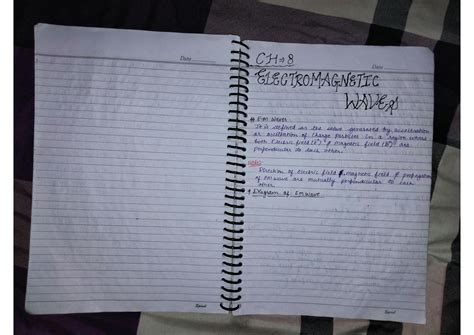 Date
CH⇒8
Date
ELECTROMAGNETIC
WAVES
# E.M. Wave :
It is defined as the wave generated by acceleration
or oscillation of charge particles in a region where
both Electric field (E) & magnetic field (B) are
perpendicular to each other.
NOTE:
Direction of electric field, magnetic field & propagation
of EM wave are mutually perpendicular to each
other.
# Diagram of EM wave